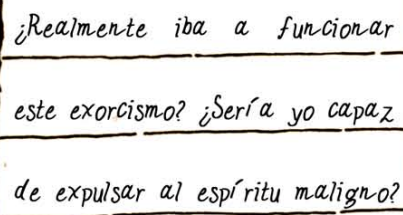 ¿Realmente iba a funcionar
este exorcismo? ¿Sería yo capaz
de expulsar al espíritu maligno?